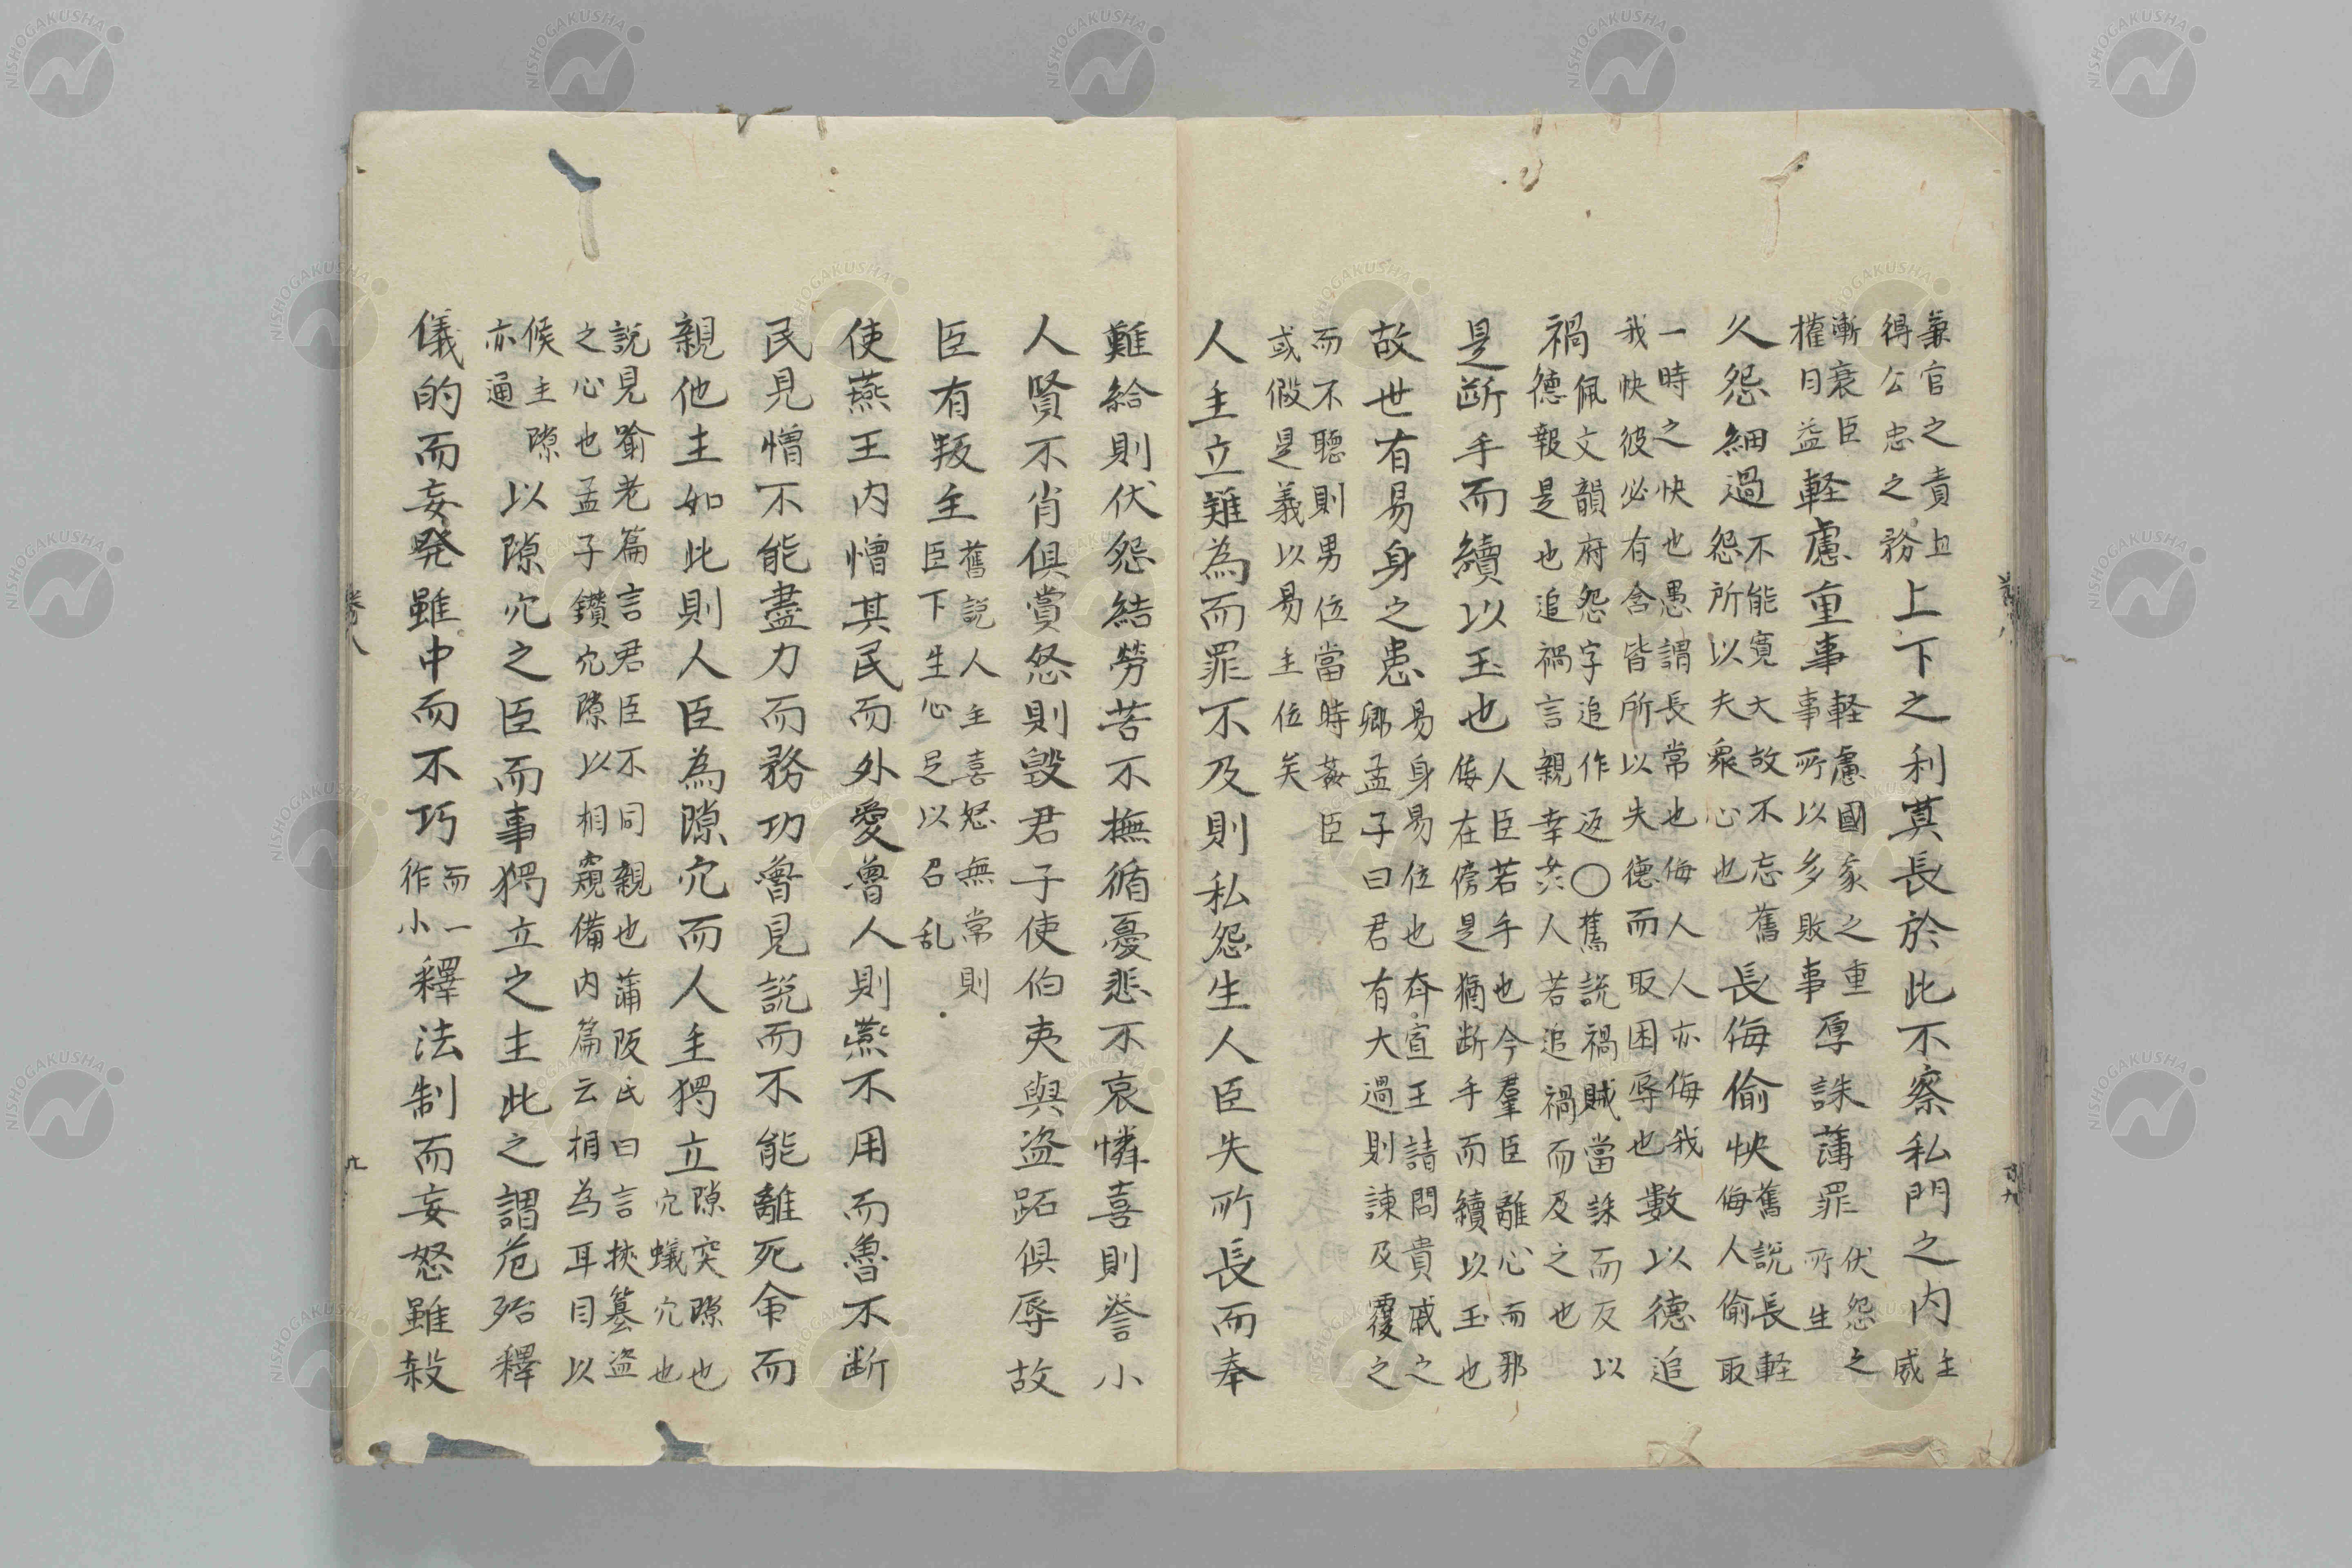 兼官之責上
得公忠之務上下之利莫長於此不察私門之内主
威
漸衰臣
權日益輕慮重事輕慮國家之重
事所以多敗事厚誅薄罪伏怨之
所生
久怨細過不能寛大故不忘舊
怨所以夫衆心也長侮偷快舊說長輕
侮人偷取
一時之快也愚謂長常也侮人人亦侮我
我快彼必有含皆所以失德而取困辱也數以德追
禍佩文韻府怨字追作返〇舊說禍賊當誅而反以
德報是也追禍言親幸
人若追禍而及之也
是斷手而續以玉也人臣若手也今羣臣離心而邪
倿在傍是猶斷手而續以玉也
故世有易身之患易身易位也齊宣王請問貴戚之
卿孟子曰君有大過則諫及覆之
而不聽則男位當時姦臣
或假是義以易主位矣
人主立難為而罪不及則私怨生人臣失所長而奉
難給則伏怨結勞苦不撫循憂悲不哀憐喜則誉小
人賢不肖俱賞怒則毀君子使伯夷與盗跖俱辱故
臣有叛主舊説人主喜怒無常則
臣下生心足以召乱
使燕王内憎其民而外愛魯人則燕不用而魯不断
民見憎不能盡力而務功魯見說而不能離死命而
親他主如此則人臣為隙穴而人主獨立隙突隙也
穴蟻穴也
説見喻老篇言君臣不同親也蒲阪氏曰言挾篡盗
之心也孟子鑽穴隙以相窺備内篇云相為耳目以
候主隙
亦通以隙穴之臣而事獨立之主此之謂危殆釋
儀的而妄発雖中而不巧而一
作小釋法制而妄怒雖殺
巻八
九